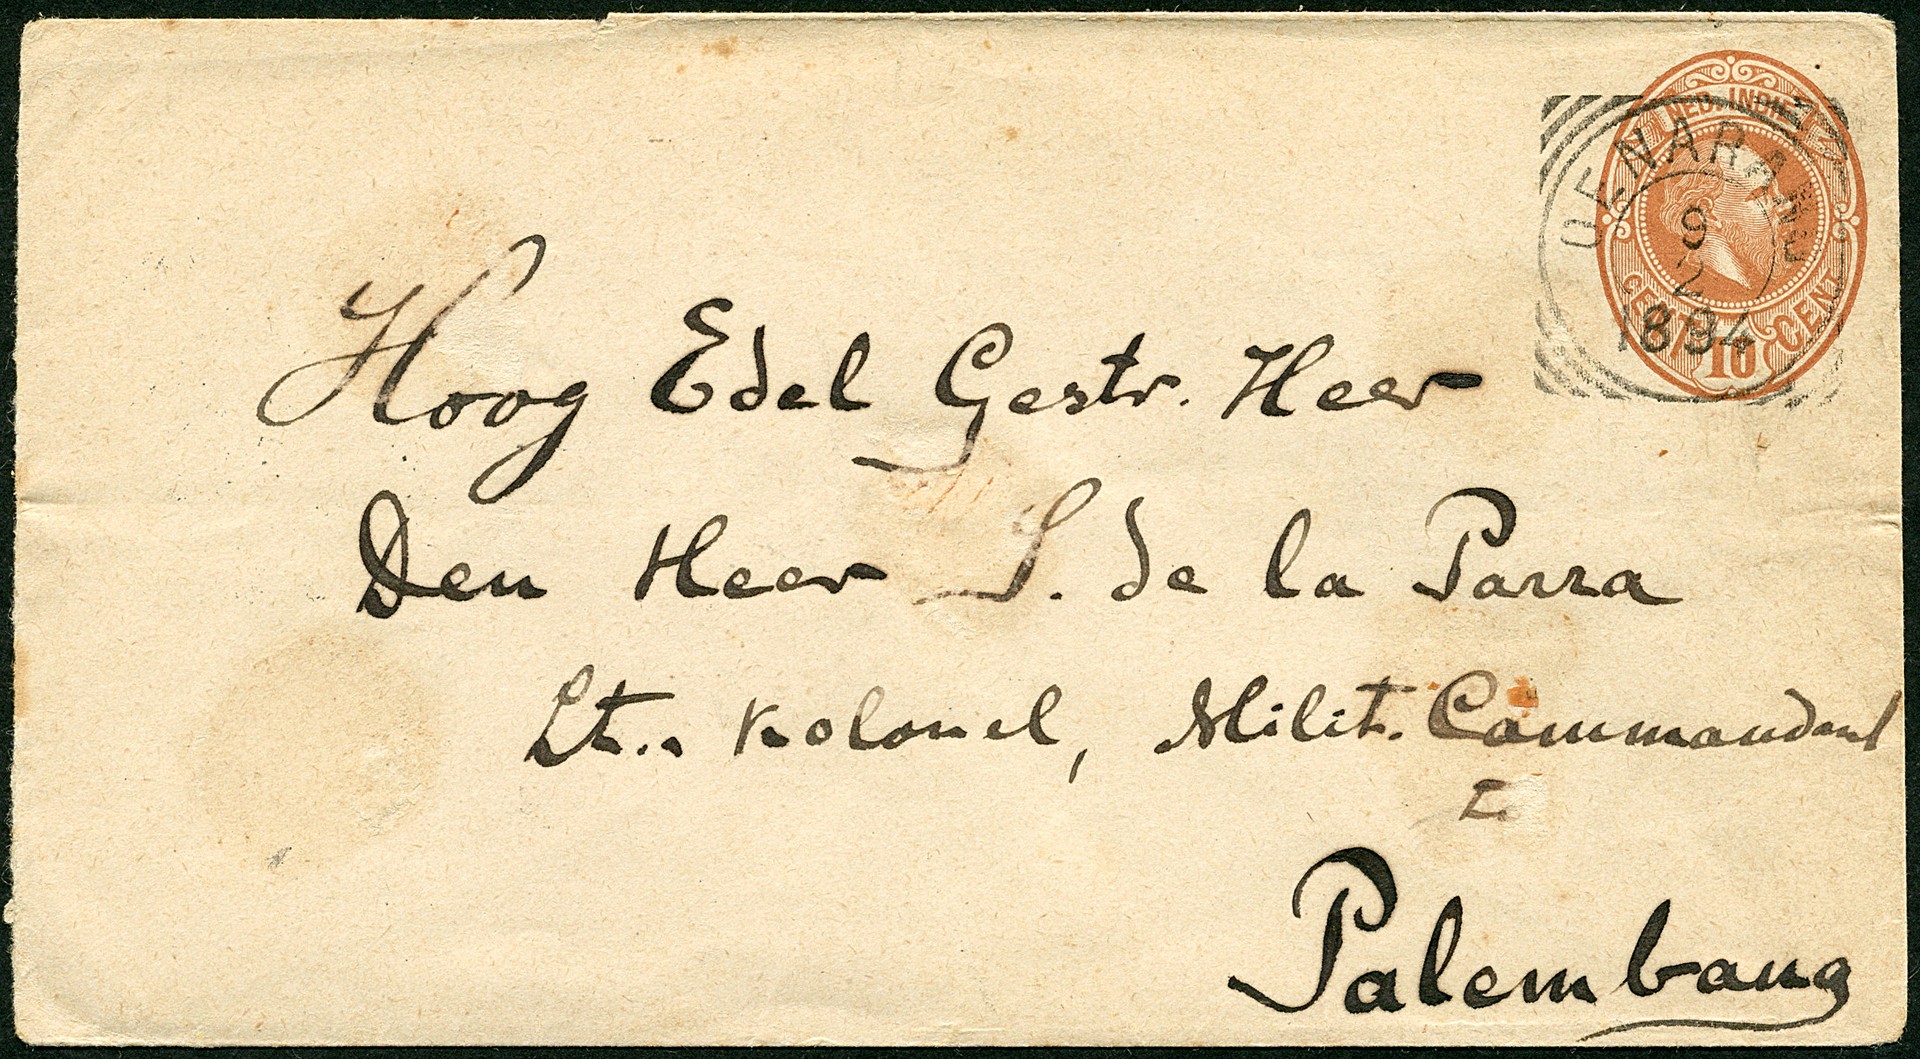 NED. INDIE
OENARANG
9
2
1894
CENT 10 CENT
Hoog Edel Gestr. Heer
Den Heer S. de la Parra
Lt.. Kolonel, Milit. Commandant
Palembang